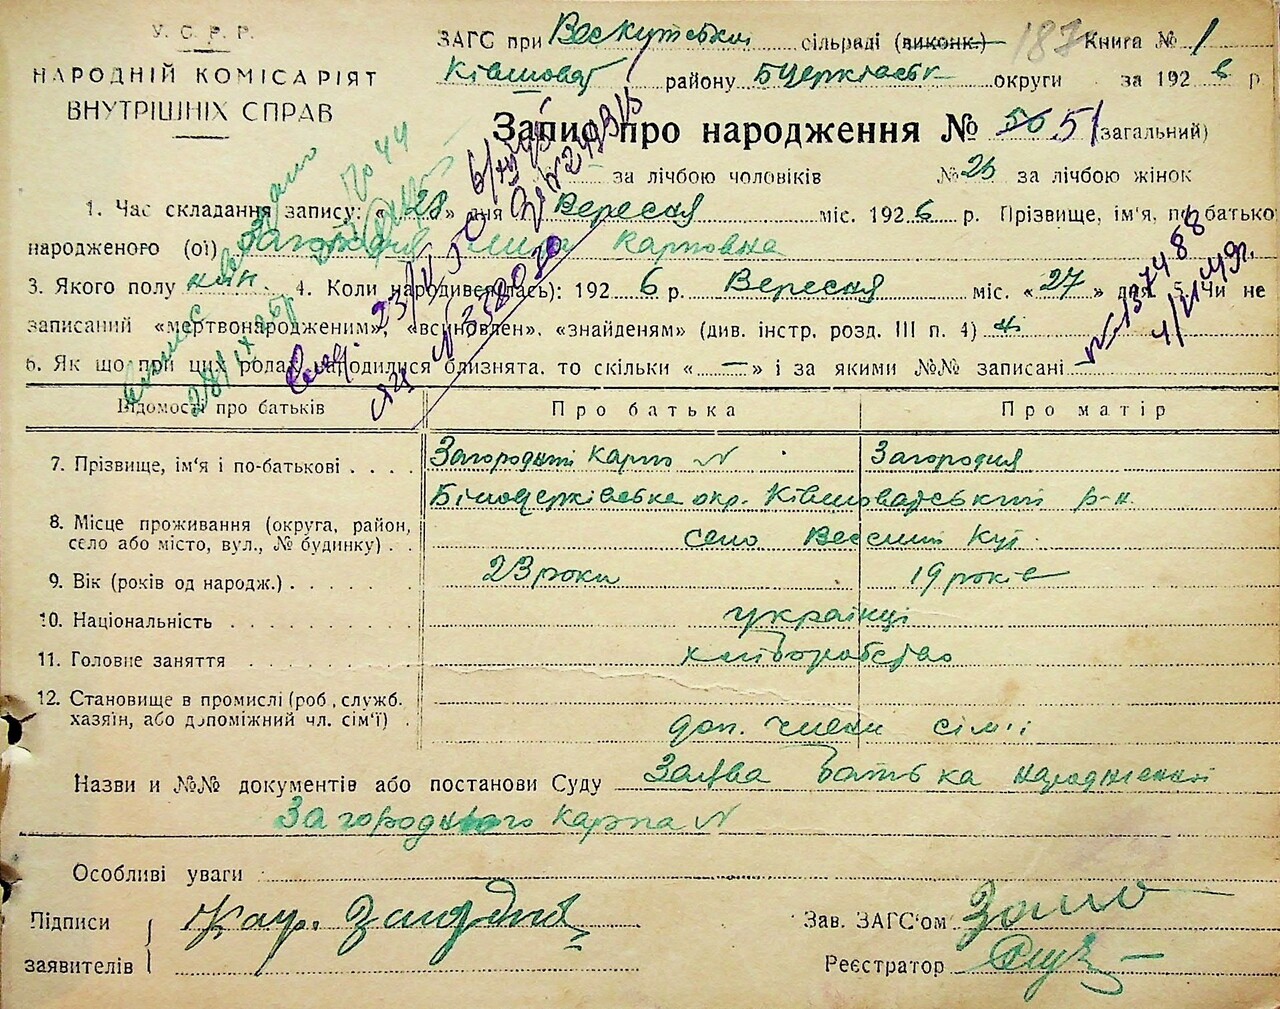 У. С. Р. Р.
НАРОДНІЙ КОМІСАРІЯТ
ВНУТРІШНІХ СПРАВ
ЗАГС при Вескутській сільраді (виконк.) 187 Книга № 1
Ківшоват району Бцерківськ округи за 1926 р.
Запис про народження № 50 51 (загальний)
за лічбою чоловіків № 25 за лічбою жінок
1. Час складання запису: «28» дня Вересня міс. 1926 р. Прізвище, ім'я, по батькові
народженого (ої) Карповна
3. Якого полу жін. 4. Коли народивсь(лась): 1926 р. Вересня міс. «27» дня 5. Чи не
записаний «мертвонародженим», «всиновлен», «знайденям» (див. інстр. розд. III п. 4) ні
6. Як що при цих родах народилися близнята, то скільки «—» і за якими №№ записані
23/V 50
28/IX 26р
4/VI 49р.
Відомості про батьків Про батька Про матір
7. Прізвище, ім'я і по-батькові . . . . Загородній Карпо N Загородня
Білоцерківська окр. Ківшоватський р-н.
8. Місце проживання (округа, район,
село або місто, вул., № будинку) . . село Веселий Кут
9. Вік (років од народж.) . . . . . . 23 роки 19 років
10. Національність . . . . . . . . . українці
11. Головне заняття . . . . . . . . . хліборобство
12. Становище в промислі (роб., служб.
хазяїн, або допоміжний чл. сім'ї) . доп. члени сім'ї
Назви и №№ документів або постанови Суду Заява батька народженної
Загороднього Карпа N
Особливі уваги
Підписи Кар. Зав. ЗАГС'ом
заявителів Реєстратор